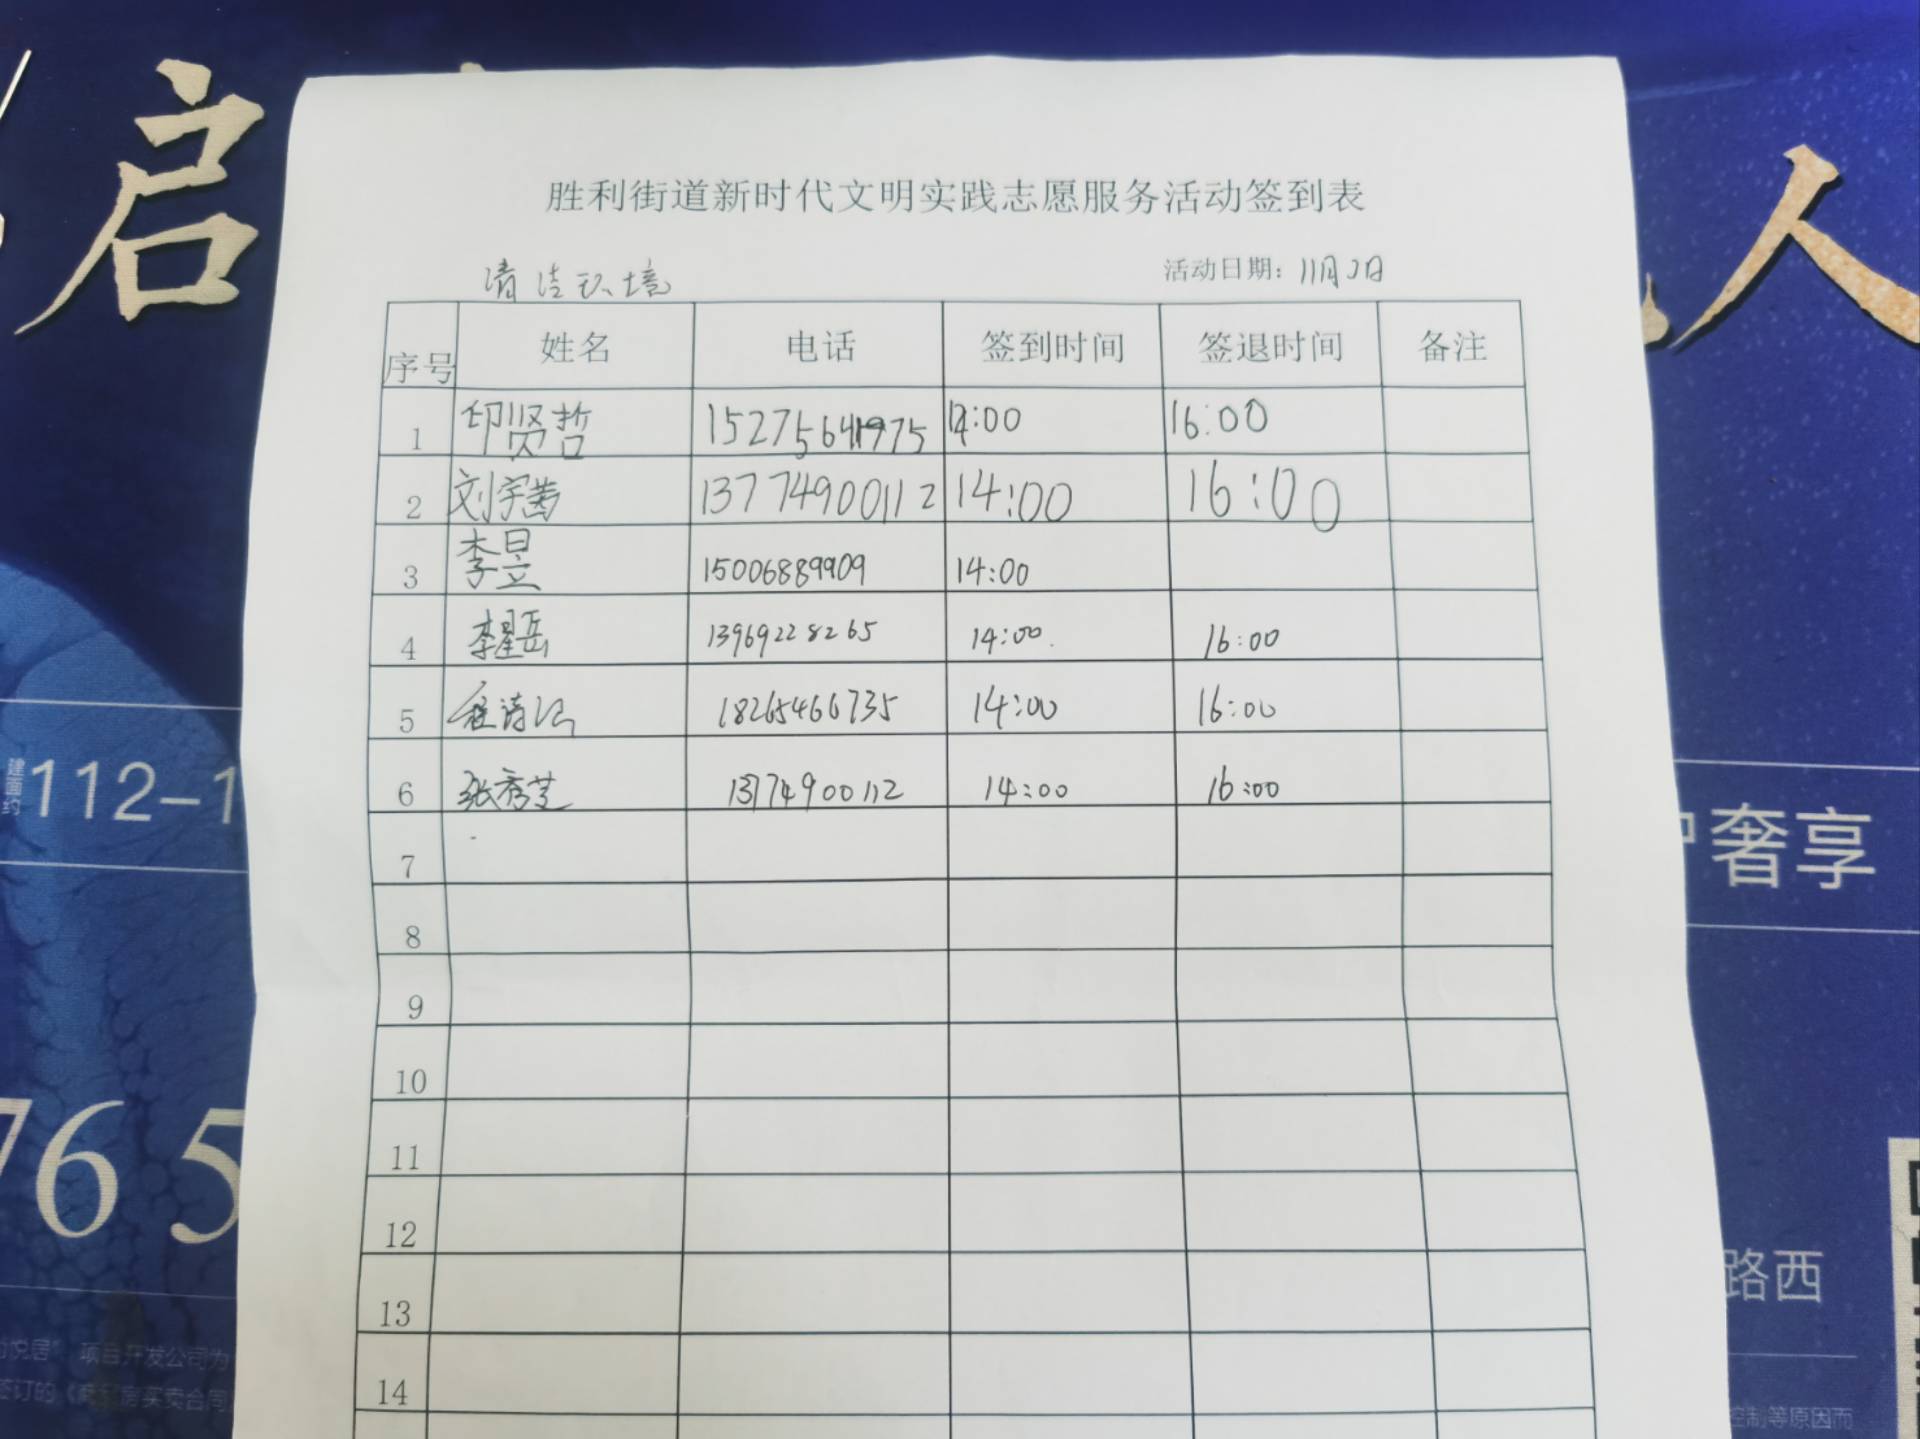 启
人
胜利街道新时代文明实践志愿服务活动签到表
清洁环境 活动日期: 11月2日
序号 姓名 电话 签到时间 签退时间 备注
1 印贤哲 15275641975 14:00 16:00
2 刘宇茜 13774900112 14:00 16:00
3 李昱 15006889909 14:00
4 李星岳 13969228265 14:00 16:00
5 18265466735 14:00 16:00
6 张秀芝 13774900112 14:00 16:00
7
8
9
10
11
12
13
14
建面约112-1
户奢享
765
路西
悦居" 项目开发公司为
签订的《商品房买卖合同
控制等原因而